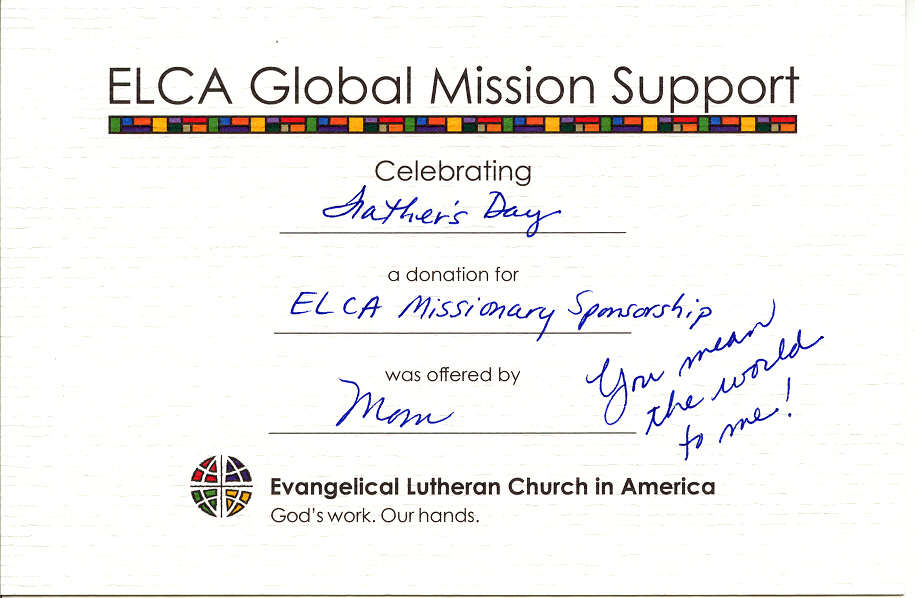 ELCA Global Mission Support
Celebrating
Father's Day
a donation for
ELCA Missionary Sponsorship
was offered by
Mom
You mean
the world
to me!
Evangelical Lutheran Church in America
God's work. Our hands.